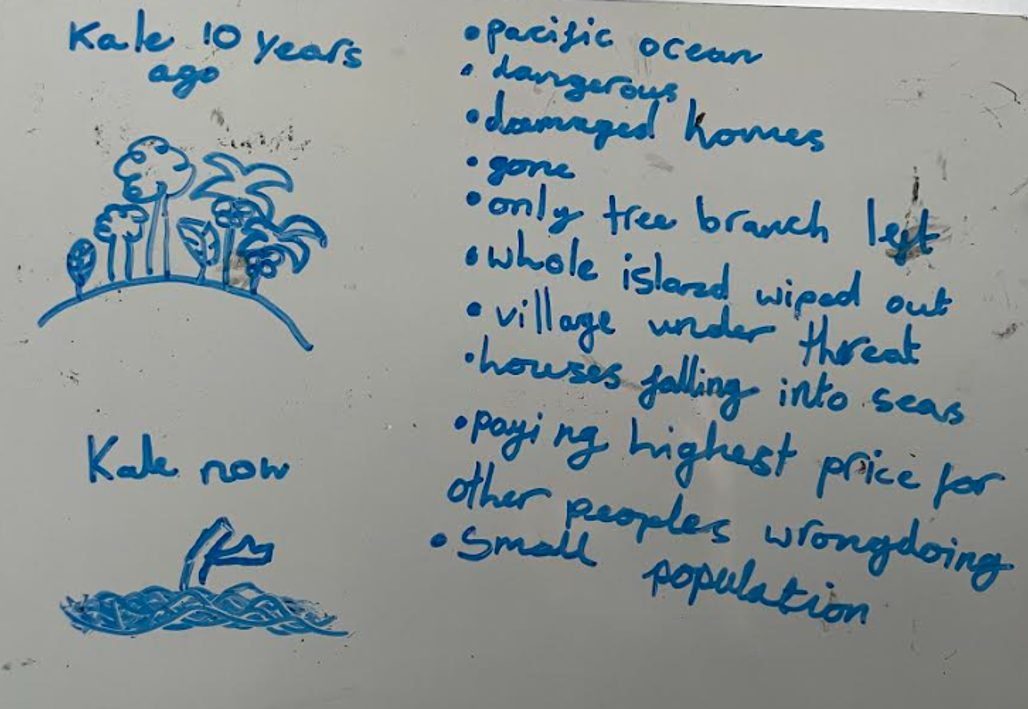 Kale 10 years
ago
• pacific ocean
• dangerous
• damaged homes
• gone
• only tree branch left
• whole island wiped out
• village under threat
• houses falling into seas
• paying highest price for
other peoples wrongdoing
• Small population
Kale now